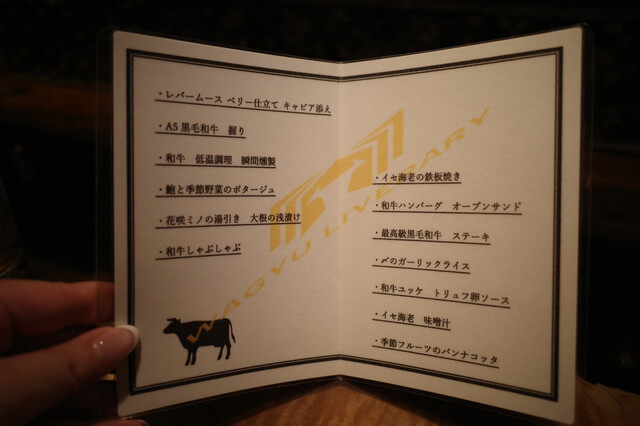 ・レバームース ベリー仕立て キャビア添え
・A5黒毛和牛　握り
・和牛　低温調理　瞬間燻製
・鮑と季節野菜のポタージュ
・花咲ミノの湯引き　大根の浅漬け
・和牛しゃぶしゃぶ
・イセ海老の鉄板焼き
・和牛ハンバーグ　オープンサンド
・最高級黒毛和牛　ステーキ
・〆のガーリックライス
・和牛ユッケ　トリュフ卵ソース
・イセ海老　味噌汁
・季節フルーツのパンナコッタ
WAGYU LIVERARY